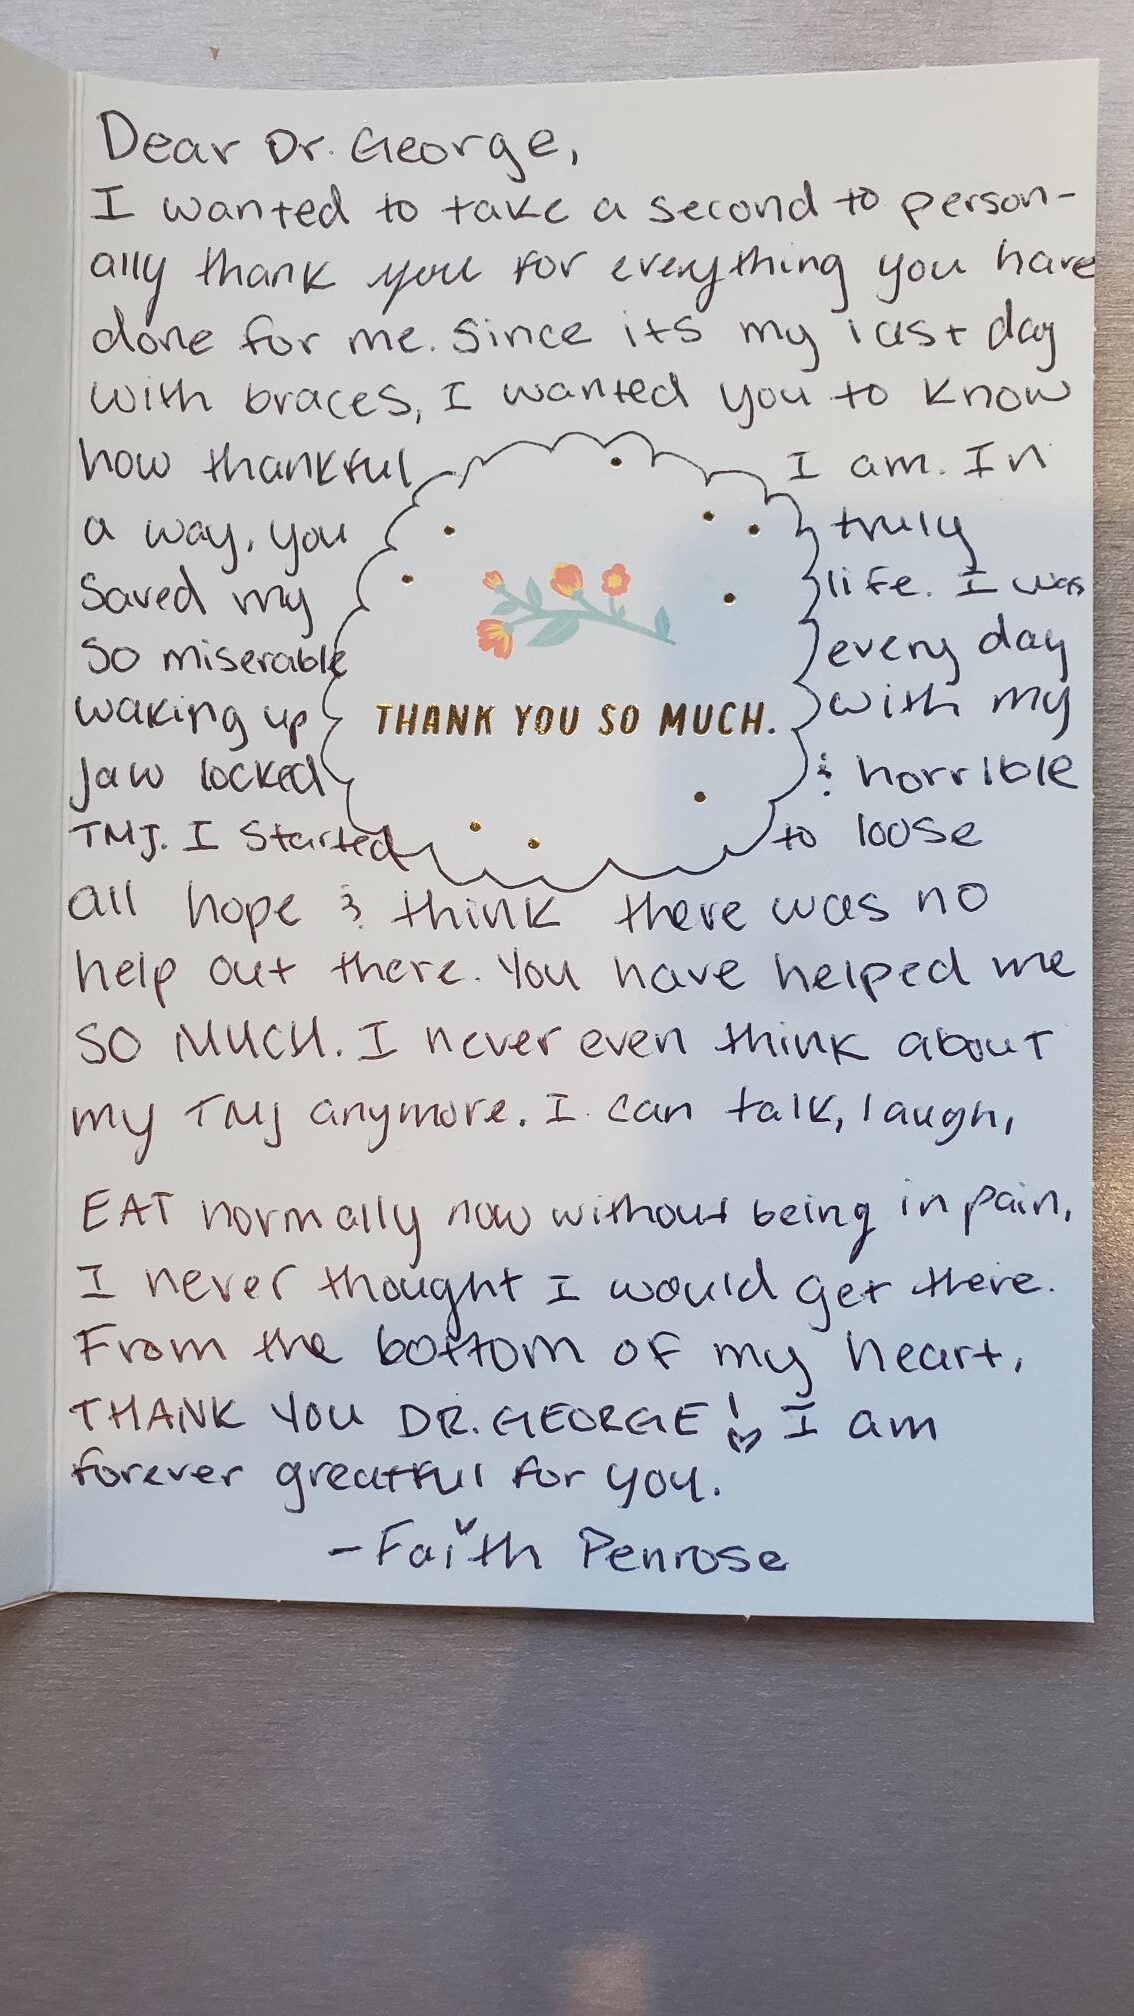 Dear Dr. George,
I wanted to take a second to person-
ally thank you for everything you have
done for me. Since its my last day
with braces, I wanted you to know
how thankful I am. In
a way, you truly
saved my life. I was
so miserable every day
waking up with my
jaw locked & horrible
TMJ. I started to loose
THANK YOU SO MUCH.
all hope & think there was no
help out there. You have helped me
SO MUCH. I never even think about
my TMJ anymore. I can talk, laugh,
EAT normally now without being in pain,
I never thought I would get there.
From the bottom of my heart,
THANK YOU DR. GEORGE! I am
forever greatful for you.
- Faith Penrose